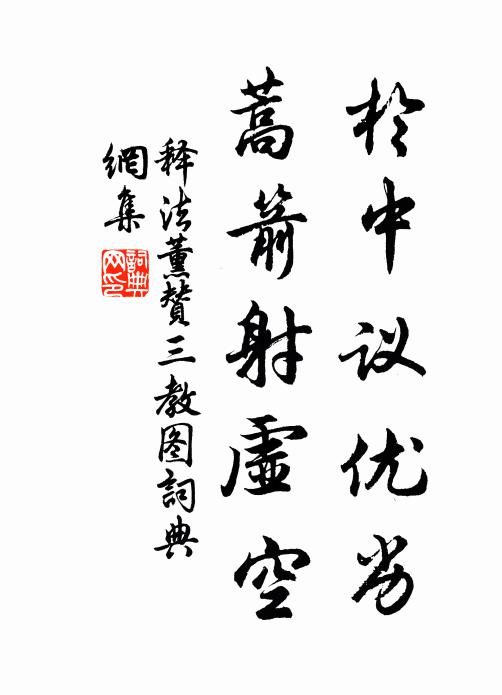 於中议优劣
蒿箭射虚空
释法薰赞三教图詞典
網集
詞典网印